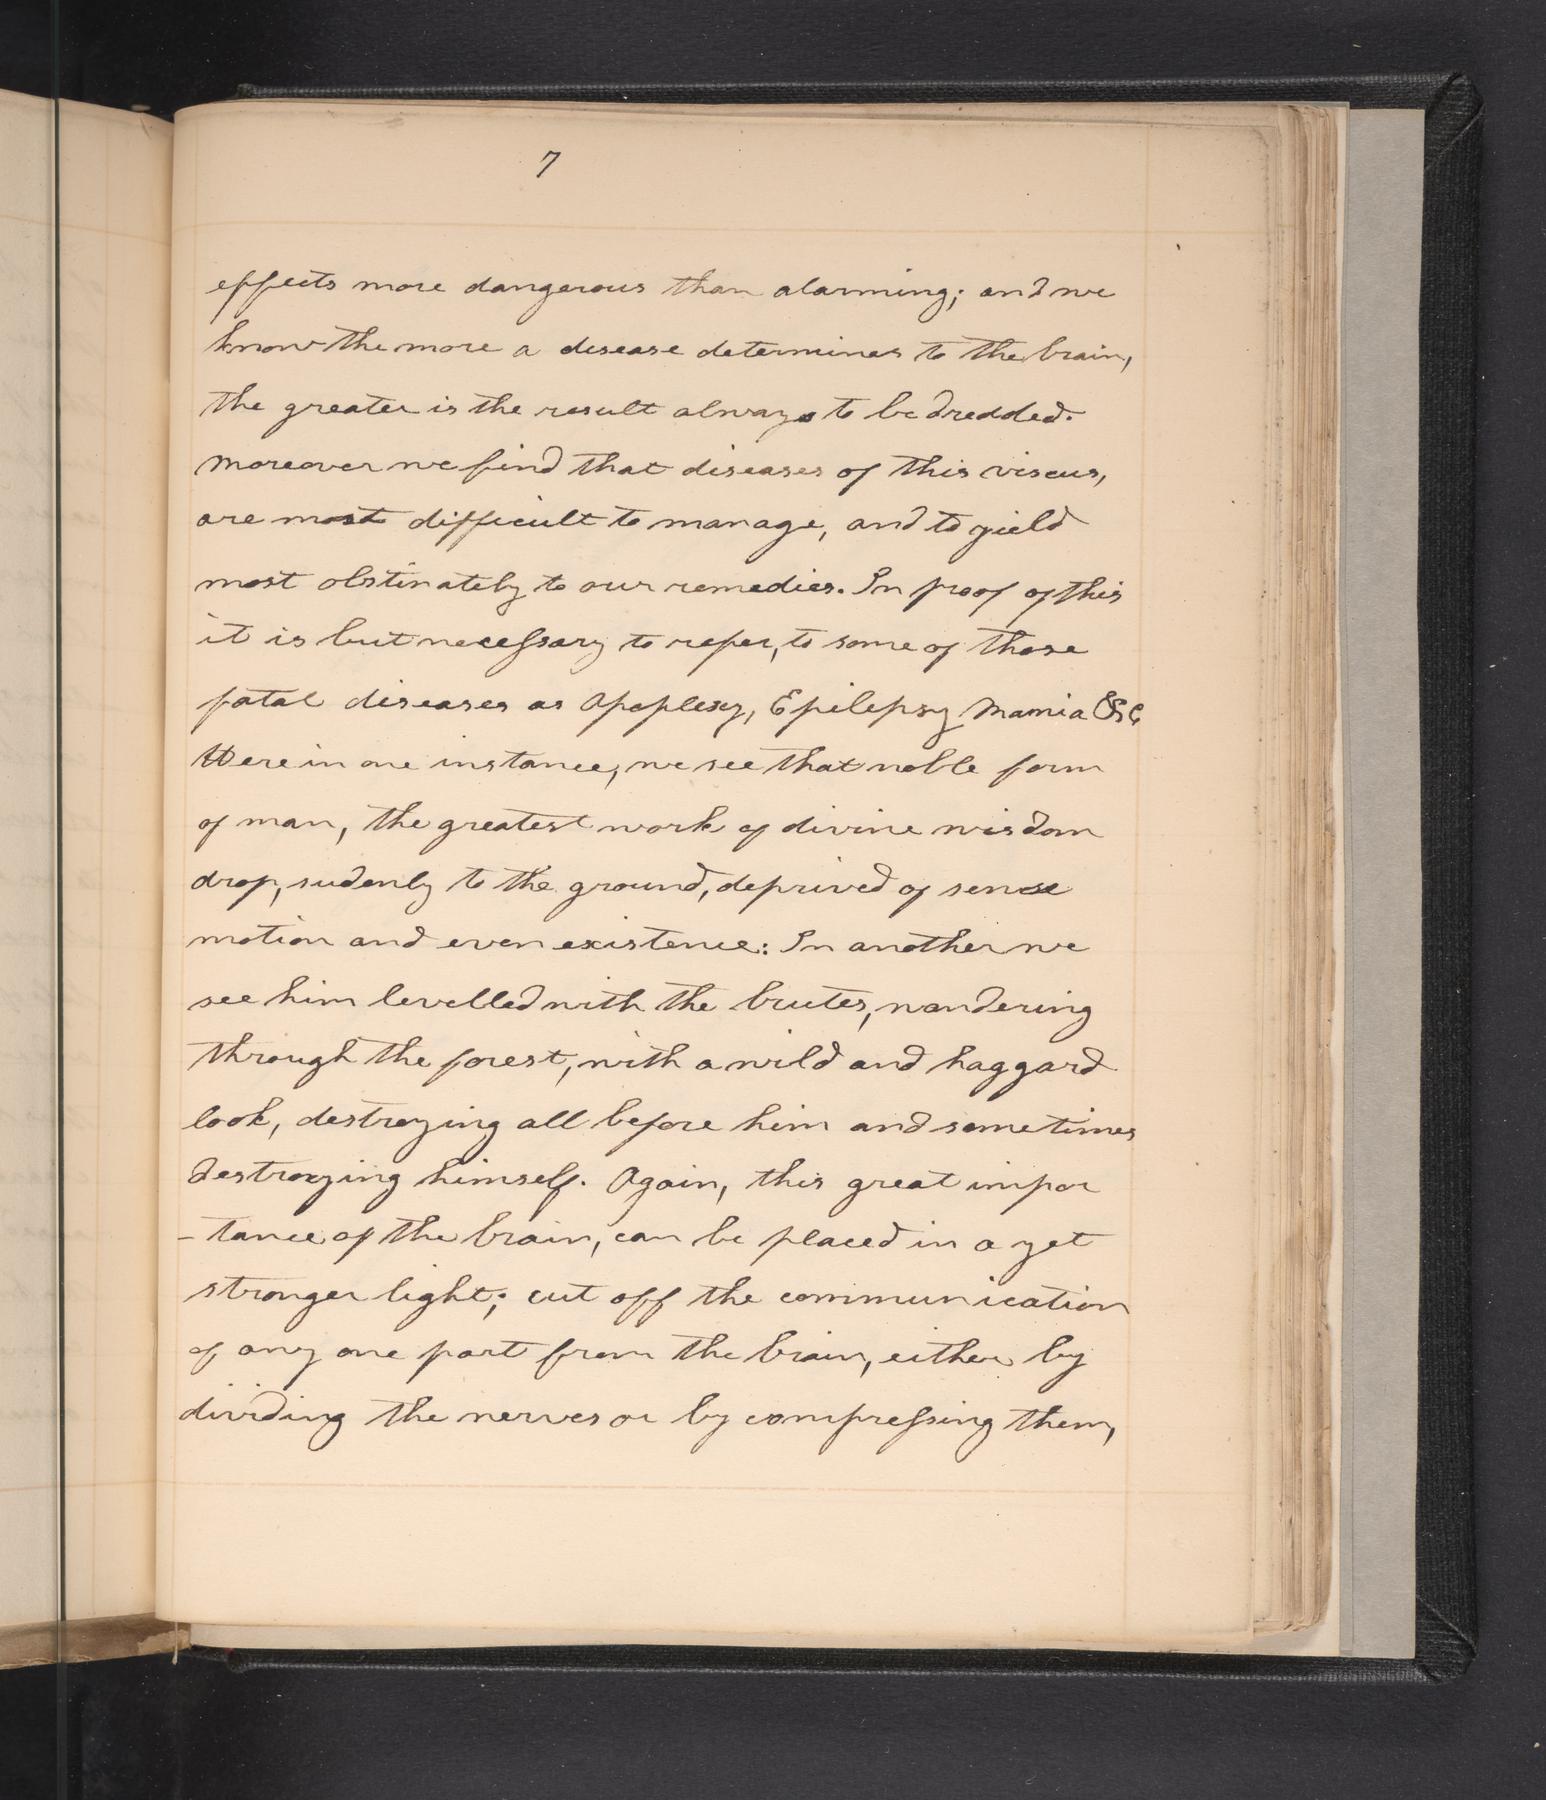 7
effects more dangerous than alarming; and we
know the more a disease determines to the brain,
the greater is the result always to be dredded.
moreover we find that diseases of this viscus,
are most difficult to manage, and to yield
most obstinately to our remedies. In proof of this
it is but necessary to refer, to some of those
fatal diseases as Apoplexy, Epilepsy Mania &c
Here in one instance, we see that noble form
of man, the greatest work of divine wisdom
drop, sudenly to the ground, deprived of sense
motion and even existence: In another we
see him levelled with the brutes, wandering
through the forest, with a wild and haggard
look, destroying all before him and sometimes
destroying himself. Again, this great impor
-tance of the brain, can be placed in a yet
stronger light; cut off the communication
of any one part from the brain, either by
dividing the nerves or by compressing them,